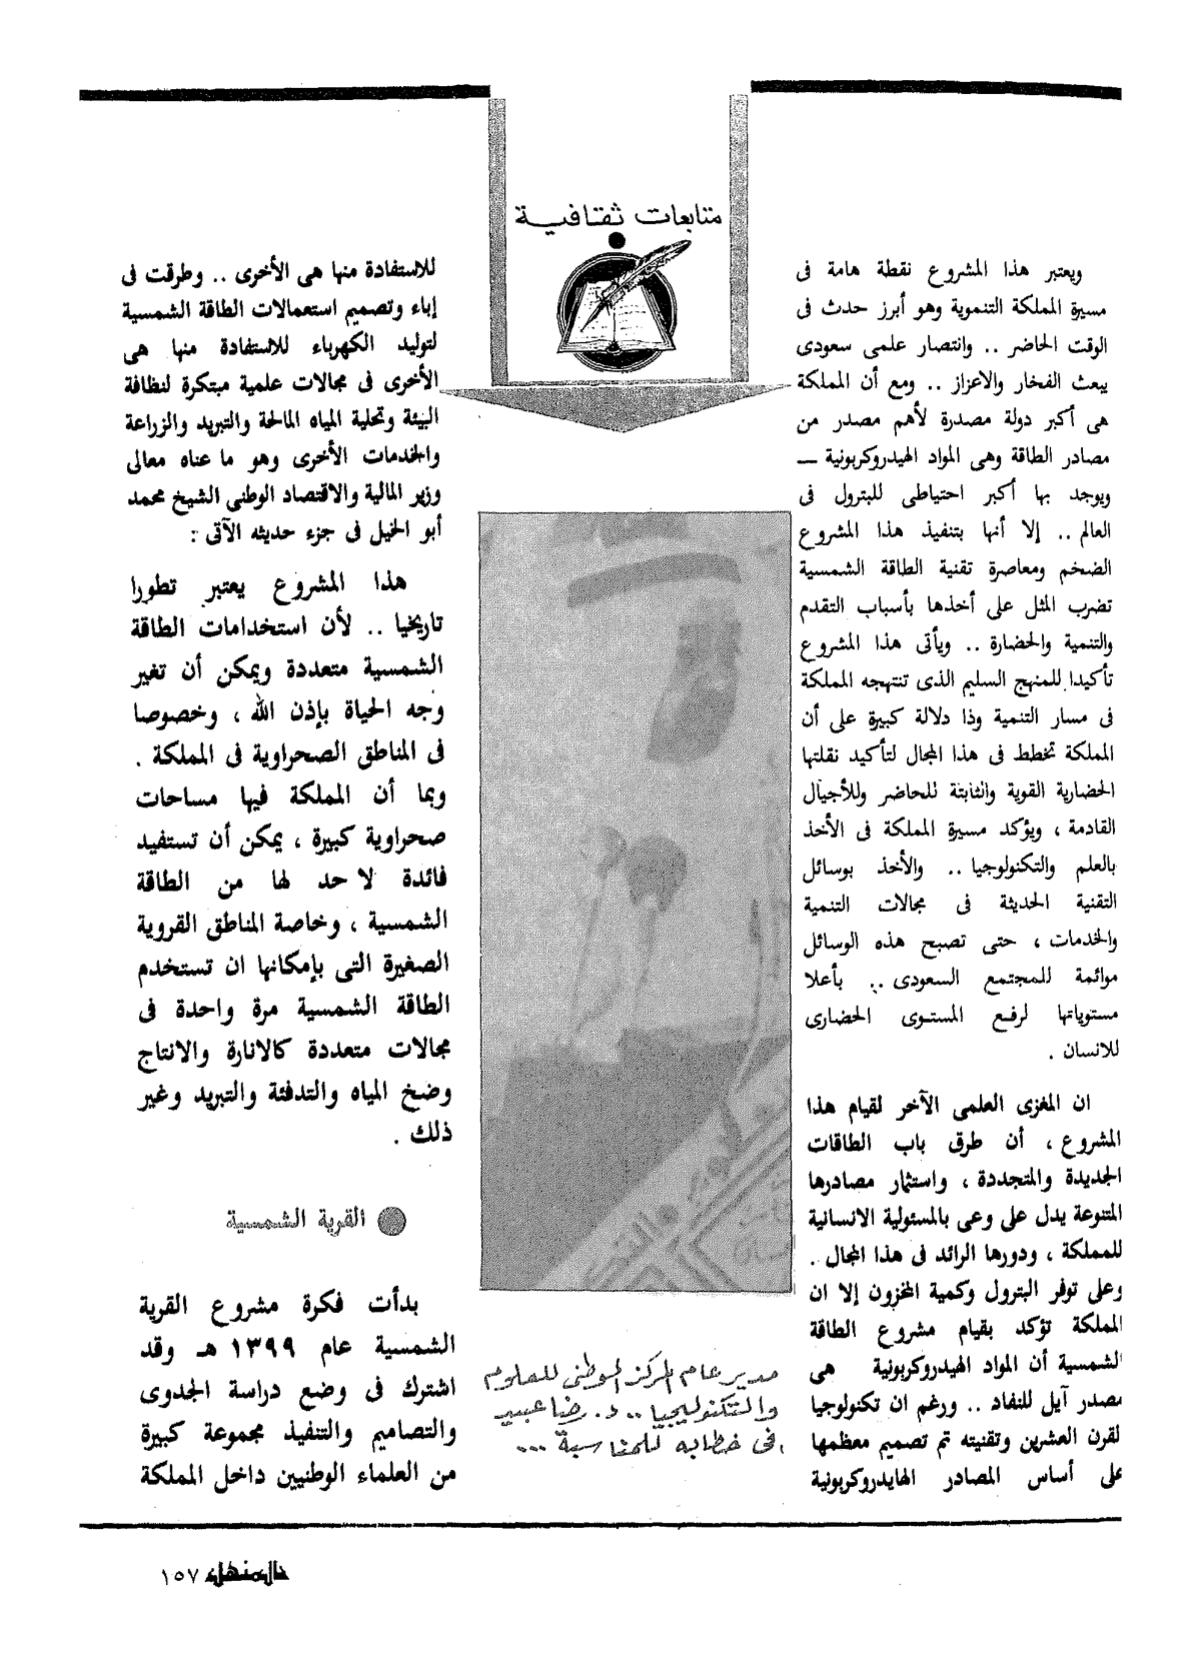 متابعات ثقافية
ويعتبر هذا المشروع نقطة هامة فى
مسيرة المملكة التنموية وهو أبرز حدث فى
الوقت الحاضر .. وانتصار علمى سعودى
يبعث الفخار والاعزاز .. ومع أن المملكة
هى أكبر دولة مصدرة لأهم مصدر من
مصادر الطاقة وهى المواد الهيدروكربونية ــ
ويوجد بها أكبر احتياطى للبترول فى
العالم .. إلا أنها بتنفيذ هذا المشروع
الضخم ومعاصرة تقنية الطاقة الشمسية
تضرب المثل على أخذها بأسباب التقدم
والتنمية والحضارة .. ويأتى هذا المشروع
تأكيدا للمنهج السليم الذى تنتهجه المملكة
فى مسار التنمية وذا دلالة كبيرة على أن
المملكة تخطط فى هذا المجال لتأكيد نقلتها
الحضارية القوية والثابتة للحاضر وللأجيال
القادمة ، ويؤكد مسيرة المملكة فى الأخذ
بالعلم والتكنولوجيا .. والأخذ بوسائل
التقنية الحديثة فى مجالات التنمية
والخدمات ، حتى تصبح هذه الوسائل
موائمة للمجتمع السعودى .. بأعلا
مستوياتها لرفع المستوى الحضارى
للانسان .
ان المغزى العلمى الآخر لقيام هذا
المشروع ، أن طرق باب الطاقات
الجديدة والمتجددة ، واستثمار مصادرها
المتنوعة يدل على وعى بالمسئولية الانسانية
للمملكة ، ودورها الرائد فى هذا المجال .
وعلى توفر البترول وكمية المخزون إلا ان
المملكة تؤكد بقيام مشروع الطاقة
الشمسية أن المواد الهيدروكربونية هى
مصدر آيل للنفاد .. ورغم ان تكنولوجيا
لقرن العشرين وتقنيته تم تصميم معظمها
على أساس المصادر الهايدروكربونية
مدير عام المركز الوطنى للعلوم
والتكنولوجيا .. د. رضا عبيد
فى خطابه للمناسبة ...
للاستفادة منها هى الأخرى .. وطرقت فى
إباء وتصميم استعمالات الطاقة الشمسية
لتوليد الكهرباء للاستفادة منها هى
الأخرى فى مجالات علمية مبتكرة لنظافة
البيئة وتحلية المياه المالحة والتبريد والزراعة
والخدمات الأخرى وهو ما عناه معالى
وزير المالية والاقتصاد الوطنى الشيخ محمد
أبو الخيل فى جزء حديثه الآتى :
هذا المشروع يعتبر تطورا
تاريخيا .. لأن استخدامات الطاقة
الشمسية متعددة ويمكن أن تغير
وجه الحياة بإذن الله ، وخصوصا
فى المناطق الصحراوية فى المملكة .
وبما أن المملكة فيها مساحات
صحراوية كبيرة ، يمكن أن تستفيد
فائدة لا حد لها من الطاقة
الشمسية ، وخاصة المناطق القروية
الصغيرة التى بإمكانها ان تستخدم
الطاقة الشمسية مرة واحدة فى
مجالات متعددة كالانارة والانتاج
وضخ المياه والتدفئة والتبريد وغير
ذلك .
● القرية الشمسية
بدأت فكرة مشروع القرية
الشمسية عام ١٣٩٩ هـ وقد
اشترك فى وضع دراسة الجدوى
والتصاميم والتنفيذ مجموعة كبيرة
من العلماء الوطنيين داخل المملكة
المنهل ١٥٧